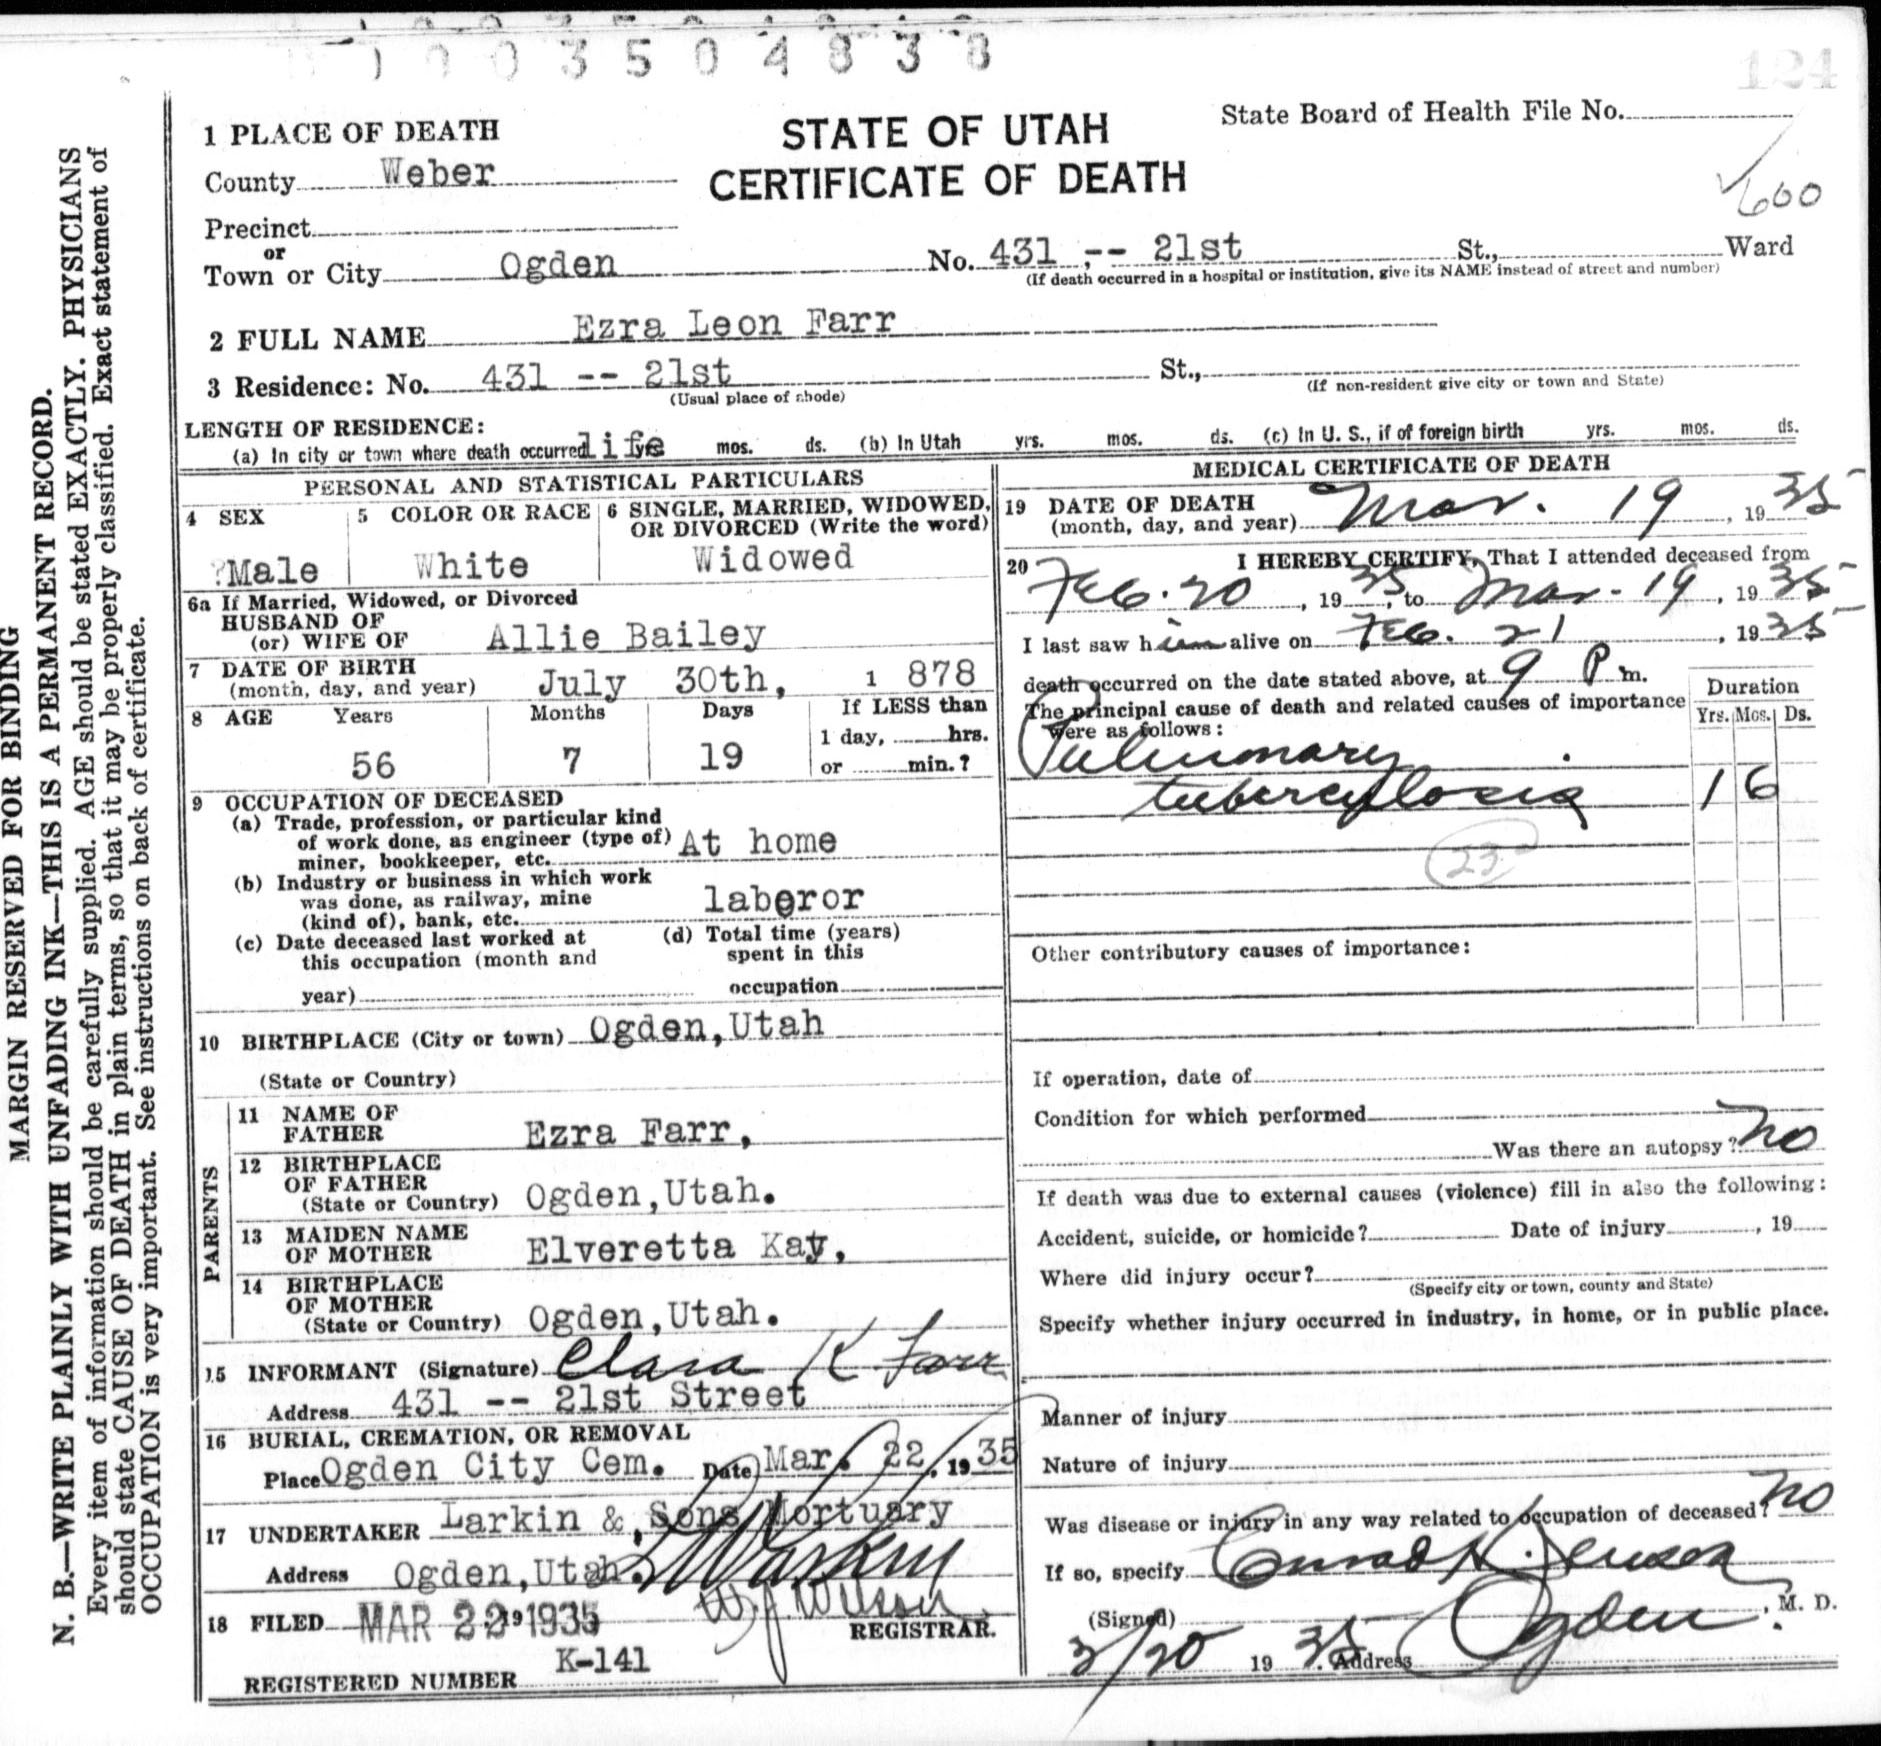 1003504838
124
1 PLACE OF DEATH
STATE OF UTAH
CERTIFICATE OF DEATH
State Board of Health File No.
600
County Weber
Precinct
or
Town or City Ogden No. 431 -- 21st St., Ward
(If death occurred in a hospital or institution, give its NAME instead of street and number)
2 FULL NAME Ezra Leon Farr
3 Residence: No. 431 -- 21st St.,
(Usual place of abode) (If non-resident give city or town and State)
LENGTH OF RESIDENCE:
(a) In city or town where death occurred life mos. ds. (b) In Utah yrs. mos. ds. (c) In U. S., if of foreign birth yrs. mos. ds.
PERSONAL AND STATISTICAL PARTICULARS
4 SEX
Male
5 COLOR OR RACE
White
6 SINGLE, MARRIED, WIDOWED,
OR DIVORCED (Write the word)
Widowed
6a If Married, Widowed, or Divorced
HUSBAND OF
(or) WIFE OF Allie Bailey
7 DATE OF BIRTH
(month, day, and year) July 30th, 1 878
8 AGE Years Months Days If LESS than
1 day, hrs.
56 7 19 or min.?
9 OCCUPATION OF DECEASED
(a) Trade, profession, or particular kind
of work done, as engineer (type of) At home
miner, bookkeeper, etc.
(b) Industry or business in which work
was done, as railway, mine laberor
(kind of), bank, etc.
(c) Date deceased last worked at (d) Total time (years)
this occupation (month and spent in this
year) occupation
10 BIRTHPLACE (City or town) Ogden,Utah
(State or Country)
PARENTS
11 NAME OF
FATHER Ezra Farr,
12 BIRTHPLACE
OF FATHER
(State or Country) Ogden,Utah.
13 MAIDEN NAME
OF MOTHER Elveretta Kay,
14 BIRTHPLACE
OF MOTHER
(State or Country) Ogden,Utah.
15 INFORMANT (Signature) Clara K Farr
Address 431 -- 21st Street
16 BURIAL, CREMATION, OR REMOVAL
Place Ogden City Cem. Date Mar. 22, 1935
17 UNDERTAKER Larkin & Sons Mortuary
Address Ogden,Utah.
18 FILED MAR 22 19 1935 W J Wilson
REGISTRAR.
REGISTERED NUMBER K-141
MEDICAL CERTIFICATE OF DEATH
19 DATE OF DEATH
(month, day, and year) Mar. 19, 1935
20 I HEREBY CERTIFY, That I attended deceased from
Feb. 20, 1935, to Mar. 19, 1935
I last saw him alive on Feb. 21, 1935
death occurred on the date stated above, at 9 P m.
The principal cause of death and related causes of importance
were as follows:
Duration
Yrs. Mos. Ds.
Pulmonary
tuberculosis 1 6
23
Other contributory causes of importance:
If operation, date of
Condition for which performed
Was there an autopsy? No
If death was due to external causes (violence) fill in also the following:
Accident, suicide, or homicide? Date of injury , 19
Where did injury occur?
(Specify city or town, county and State)
Specify whether injury occurred in industry, in home, or in public place.
Manner of injury
Nature of injury
Was disease or injury in any way related to occupation of deceased? No
If so, specify Conrad H. Jensen
(Signed) , M. D.
3/20 1935. Address Ogden.
MARGIN RESERVED FOR BINDING
N. B.—WRITE PLAINLY WITH UNFADING INK—THIS IS A PERMANENT RECORD.
Every item of information should be carefully supplied. AGE should be stated EXACTLY. PHYSICIANS
should state CAUSE OF DEATH in plain terms, so that it may be properly classified. Exact statement of
OCCUPATION is very important. See instructions on back of certificate.